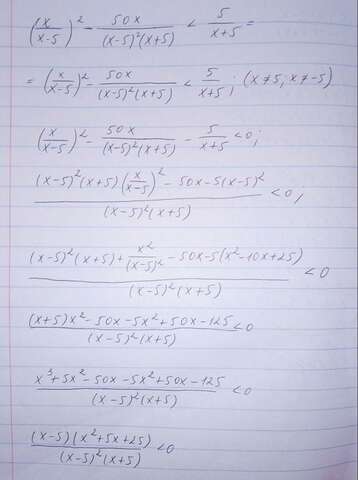 (x/(x-5))² - 50x/((x-5)²(x+5)) < 5/(x+5) =
= (x/(x-5))² - 50x/((x-5)²(x+5)) < 5/(x+5); (x≠5, x≠-5)
(x/(x-5))² - 50x/((x-5)²(x+5)) - 5/(x+5) < 0;
((x-5)²(x+5)(x/(x-5))² - 50x - 5(x-5)²)/((x-5)²(x+5)) < 0;
((x-5)²(x+5) + x²/(x-5)² - 50x - 5(x² - 10x + 25))/((x-5)²(x+5)) < 0
((x+5)x² - 50x - 5x² + 50x - 125)/((x-5)²(x+5)) < 0
(x³ + 5x² - 50x - 5x² + 50x - 125)/((x-5)²(x+5)) < 0
((x-5)(x² + 5x + 25))/((x-5)²(x+5)) < 0